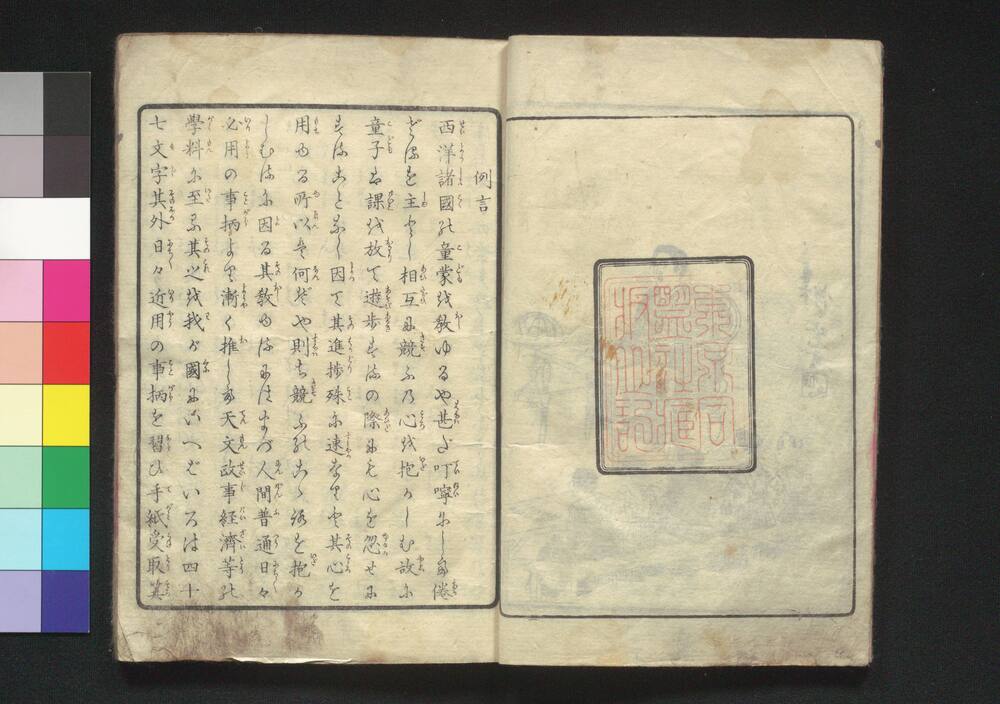 例言
西洋諸國の童蒙を教ゆるや甚だ叮嚀にして倦
ざるを主とし相互に競ふの心を抱かしむ故に
童子も課を放て遊歩するの際にも心を忽せに
することなし因て其進捗殊に速なりと其心を
用ゆる所以は何ぞや則ち競ふのこゝろを抱か
しむるに因る其教ゆるにはまづ人間普通日々
必用の事柄より漸く推して天文故事経濟等の
學科に至る其之を我が國にいへばいろは四十
七文字其外日々近用の事柄を習ひ手紙受取算